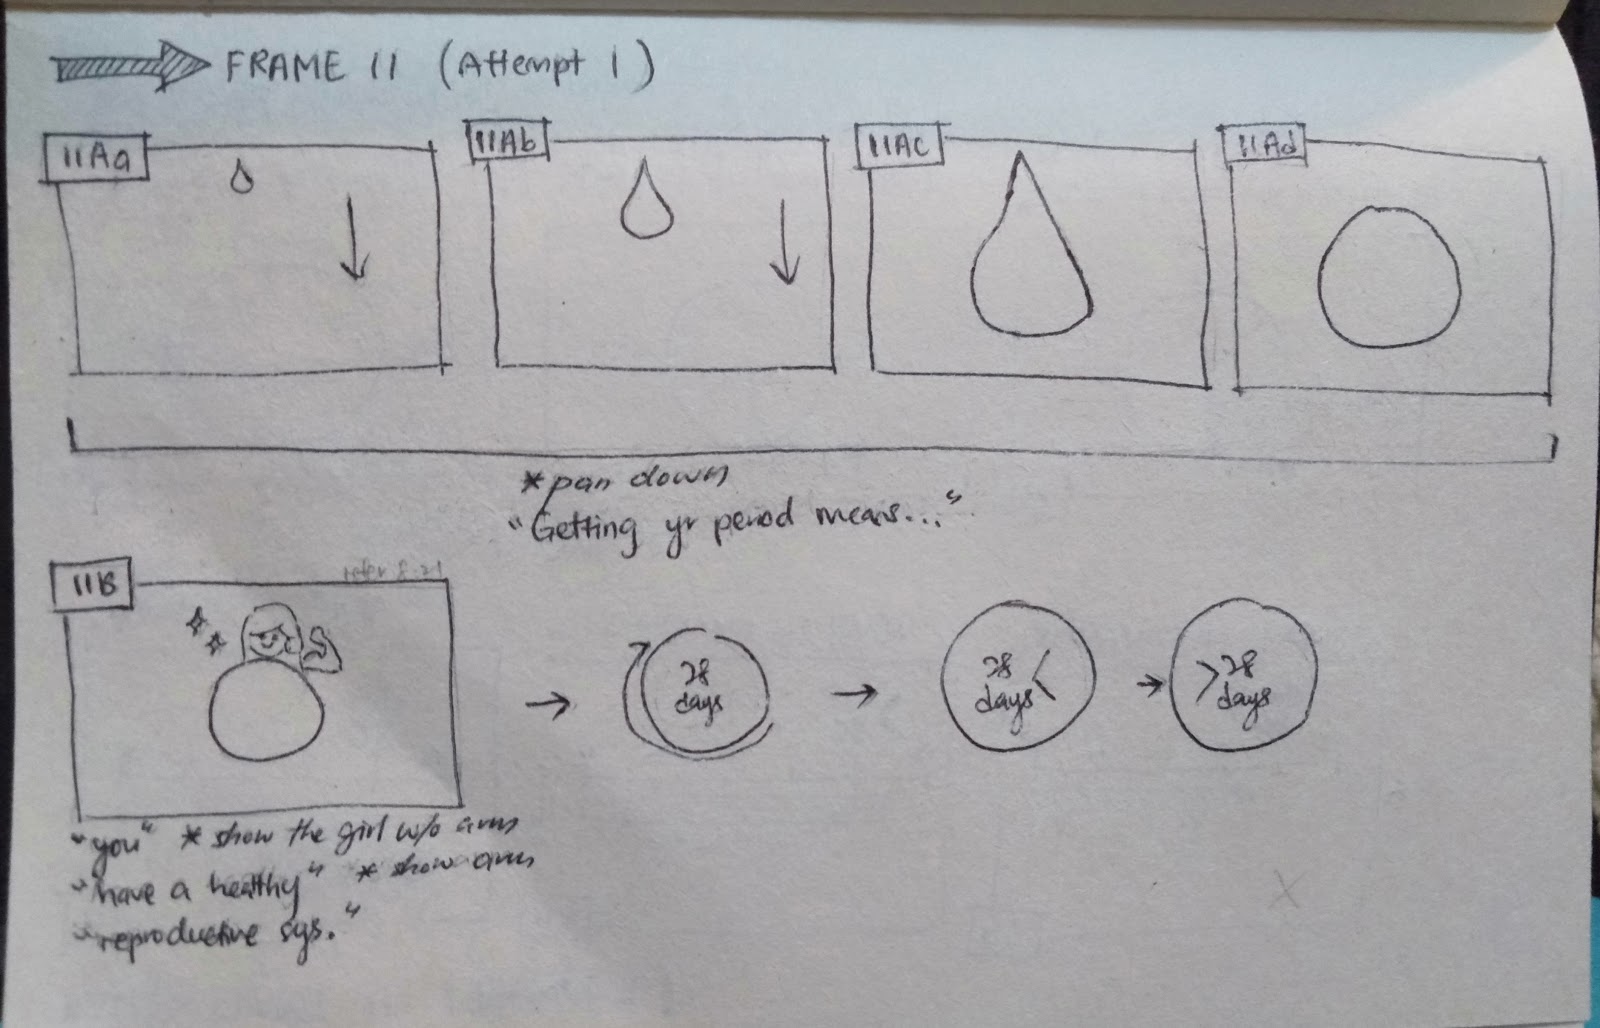 FRAME 11 (Attempt 1)
11Aa
11Ab
11Ac
11Ad
*pan down
"Getting yr period means..."
11B
refer 8.21
28
days
28
days <
> 28
days
"you" * show the girl w/o arm
"have a healthy" * show arm
reproductive sys."